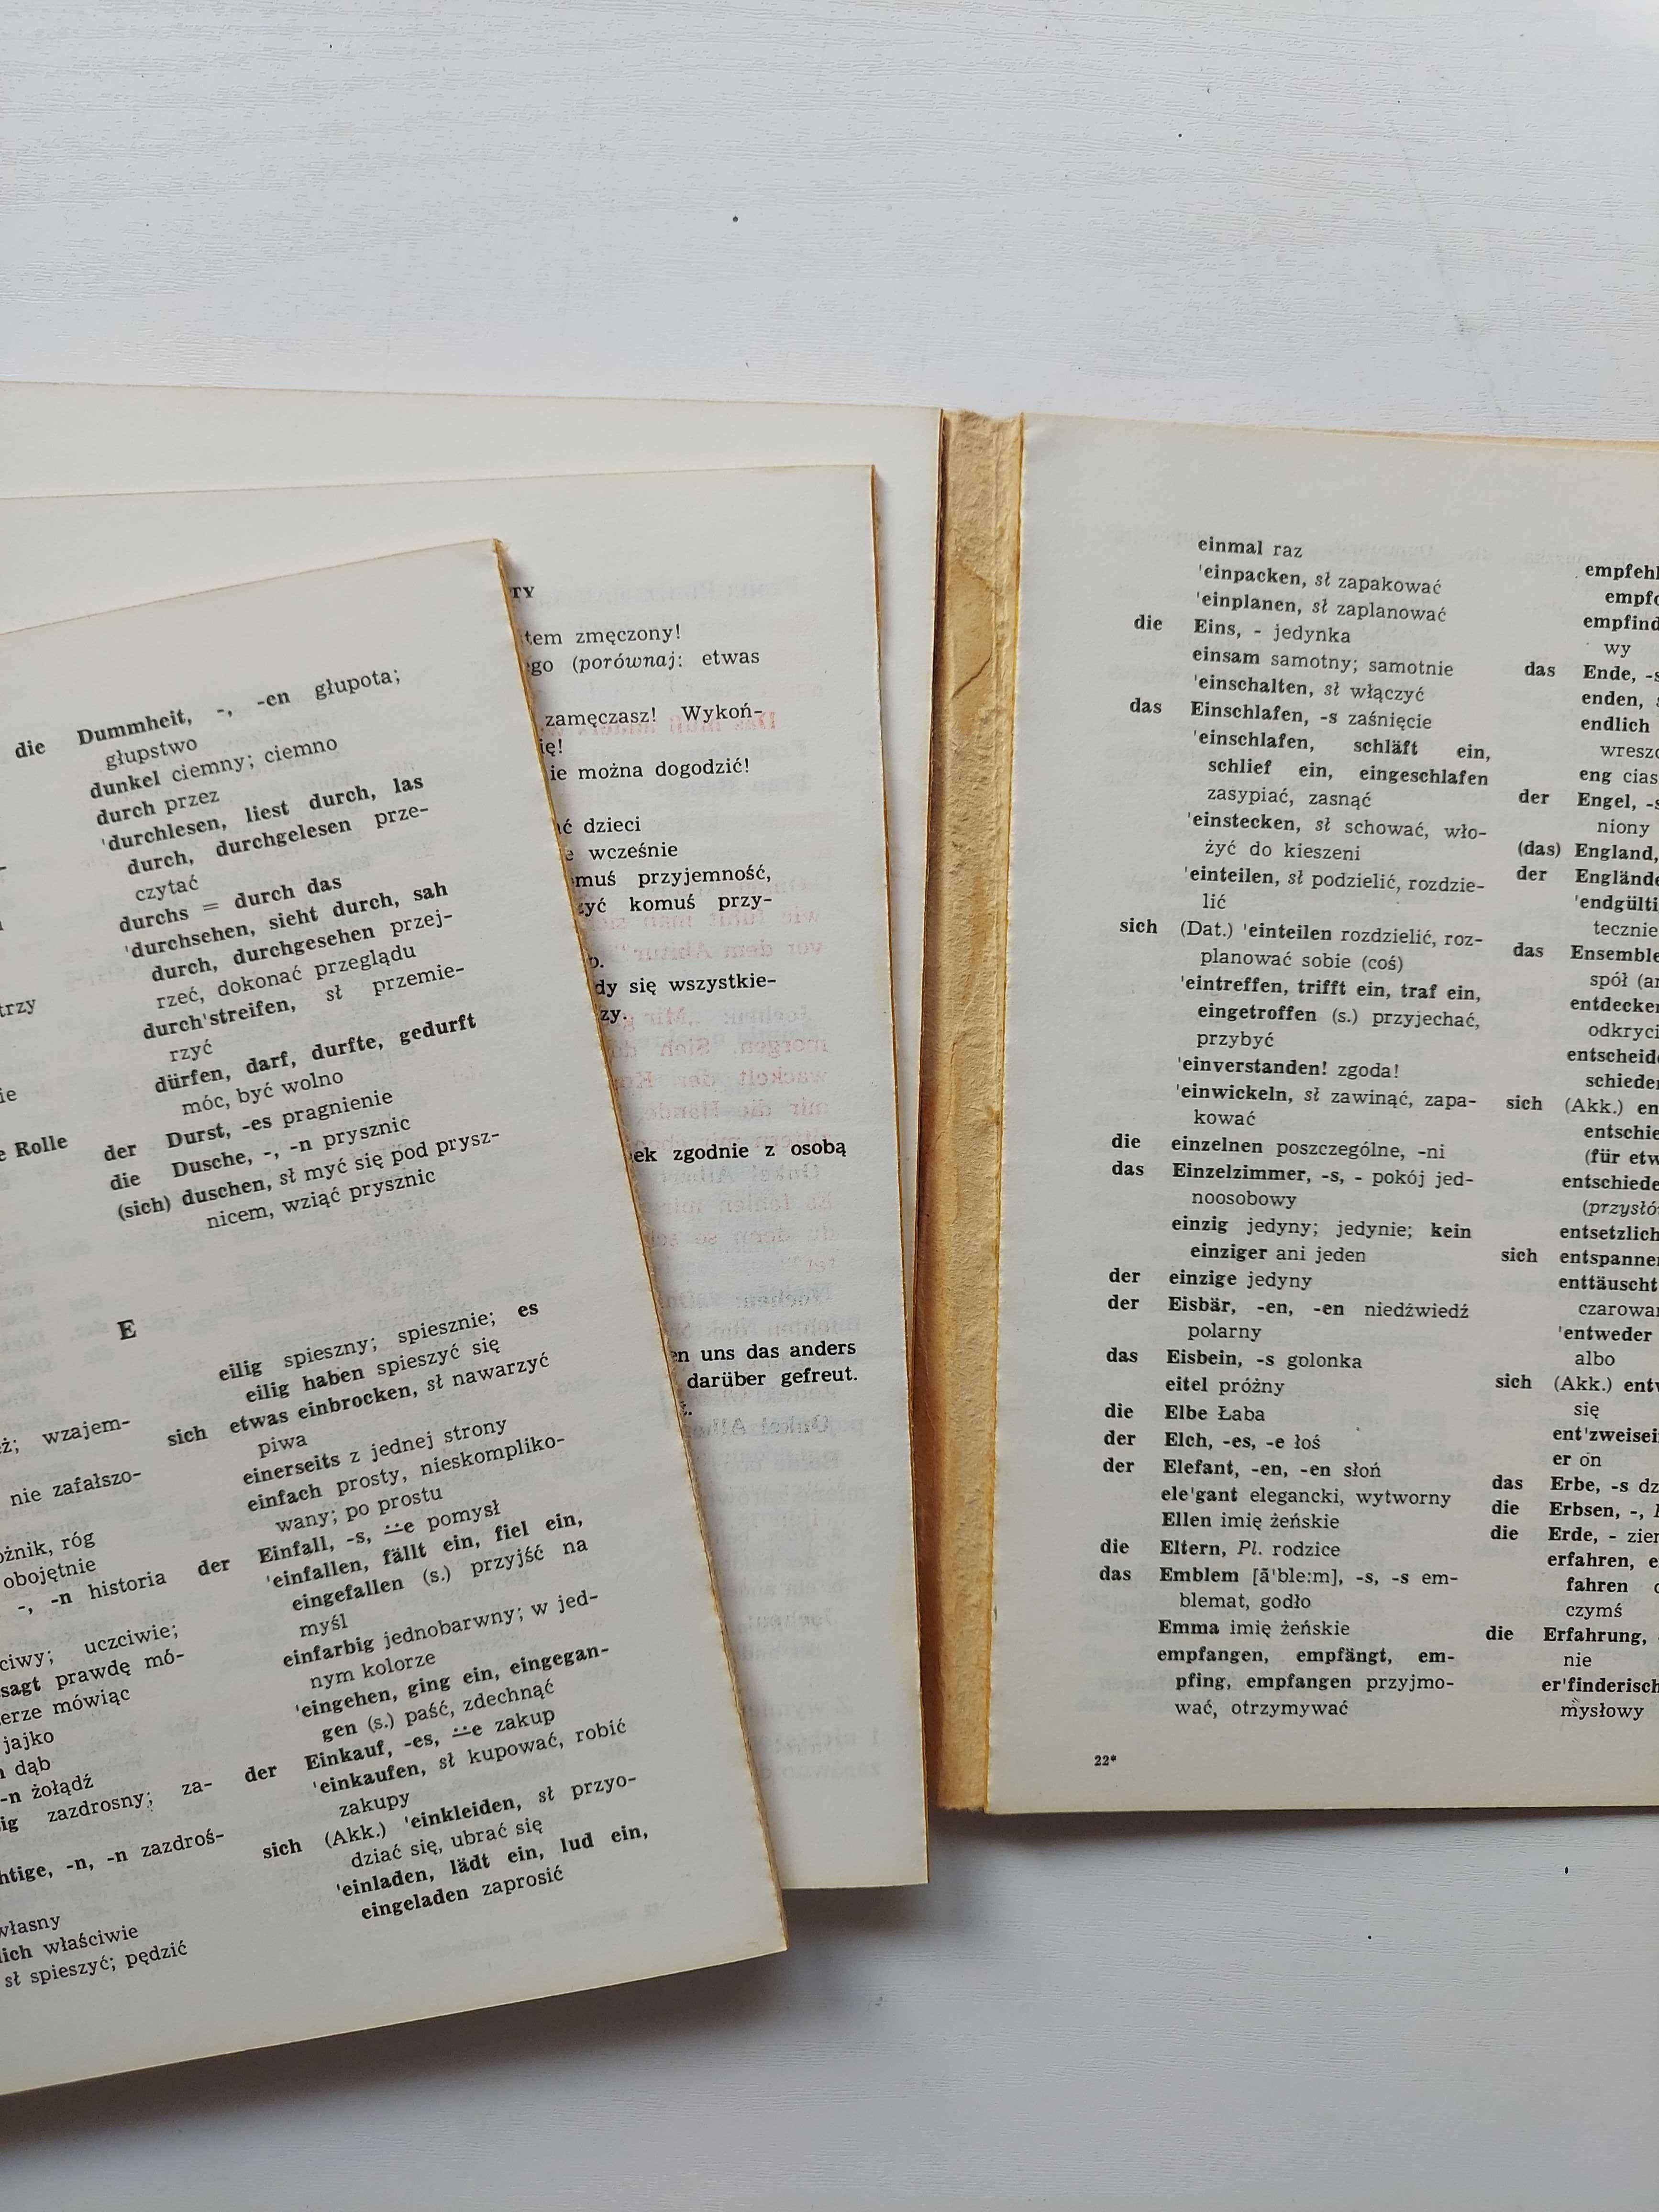 trzy
e Rolle
ż; wzajem-
nie zafałszo-
róg
obojętnie
-, -n historia
uczciwie;
sagt prawdę mó-
mówiąc
jajko
dąb
-n żołądź
zazdrosny; za-
-n, -n zazdroś-
właściwie
sł spieszyć; pędzić
die Dummheit, -, -en głupota;
głupstwo
dunkel ciemny; ciemno
durch przez
'durchlesen, liest durch, las
durch, durchgelesen prze-
czytać
durchs = durch das
'durchsehen, sieht durch, sah
durch, durchgesehen przej-
rzeć, dokonać przeglądu
durch'streifen, sł przemie-
rzyć
dürfen, darf, durfte, gedurft
móc, być wolno
der Durst, -es pragnienie
die Dusche, -, -n prysznic
(sich) duschen, sł myć się pod prysz-
nicem, wziąć prysznic
E
eilig spieszny; spiesznie; es
eilig haben spieszyć się
sich etwas einbrocken, sł nawarzyć
piwa
einerseits z jednej strony
einfach prosty, nieskompliko-
wany; po prostu
der Einfall, -s, ⸚e pomysł
'einfallen, fällt ein, fiel ein,
eingefallen (s.) przyjść na
myśl
einfarbig jednobarwny; w jed-
nym kolorze
'eingehen, ging ein, eingegan-
gen (s.) paść, zdechnąć
der Einkauf, -es, ⸚e zakup
'einkaufen, sł kupować, robić
zakupy
sich (Akk.) 'einkleiden, sł przyo-
dziać się, ubrać się
'einladen, lädt ein, lud ein,
eingeladen zaprosić
TY
tem zmęczony!
ego (porównaj: etwas
zamęczasz! Wykoń-
ię!
ie można dogodzić!
ć dzieci
e wcześnie
muś przyjemność,
zyć komuś przy-
o.
dy się wszystkie-
zy.
ek zgodnie z osobą
en uns das anders
darüber gefreut.
t.
einmal raz
'einpacken, sł zapakować
'einplanen, sł zaplanować
die Eins, - jedynka
einsam samotny; samotnie
'einschalten, sł włączyć
das Einschlafen, -s zaśnięcie
'einschlafen, schläft ein,
schlief ein, eingeschlafen
zasypiać, zasnąć
'einstecken, sł schować, wło-
żyć do kieszeni
'einteilen, sł podzielić, rozdzie-
lić
sich (Dat.) 'einteilen rozdzielić, roz-
planować sobie (coś)
'eintreffen, trifft ein, traf ein,
eingetroffen (s.) przyjechać,
przybyć
'einverstanden! zgoda!
'einwickeln, sł zawinąć, zapa-
kować
die einzelnen poszczególne, -ni
das Einzelzimmer, -s, - pokój jed-
noosobowy
einzig jedyny; jedynie; kein
einziger ani jeden
der einzige jedyny
der Eisbär, -en, -en niedźwiedź
polarny
das Eisbein, -s golonka
eitel próżny
die Elbe Łaba
der Elch, -es, -e łoś
der Elefant, -en, -en słoń
ele'gant elegancki, wytworny
Ellen imię żeńskie
die Eltern, Pl. rodzice
das Emblem [ã'ble:m], -s, -s em-
blemat, godło
Emma imię żeńskie
empfangen, empfängt, em-
pfing, empfangen przyjmo-
wać, otrzymywać
22*
empfehl
empfo
empfind
wy
das Ende, -s
enden, s
endlich
wresz
eng cias
der Engel, -s
niony
(das) England,
der Englände
'endgülti
tecznie
das Ensemble
spół (ar
entdecken
odkryci
entscheide
schieden
sich (Akk.) en
entschie
(für etw
entschiede
(przysłó
entsetzlich
sich entspannen
enttäuscht
czarowan
'entweder
albo
sich (Akk.) entw
się
ent'zweisei
er on
das Erbe, -s dz
die Erbsen, -,
die Erde, - zier
erfahren, e
fahren
czymś
die Erfahrung,
nie
er'finderisch
mysłowy